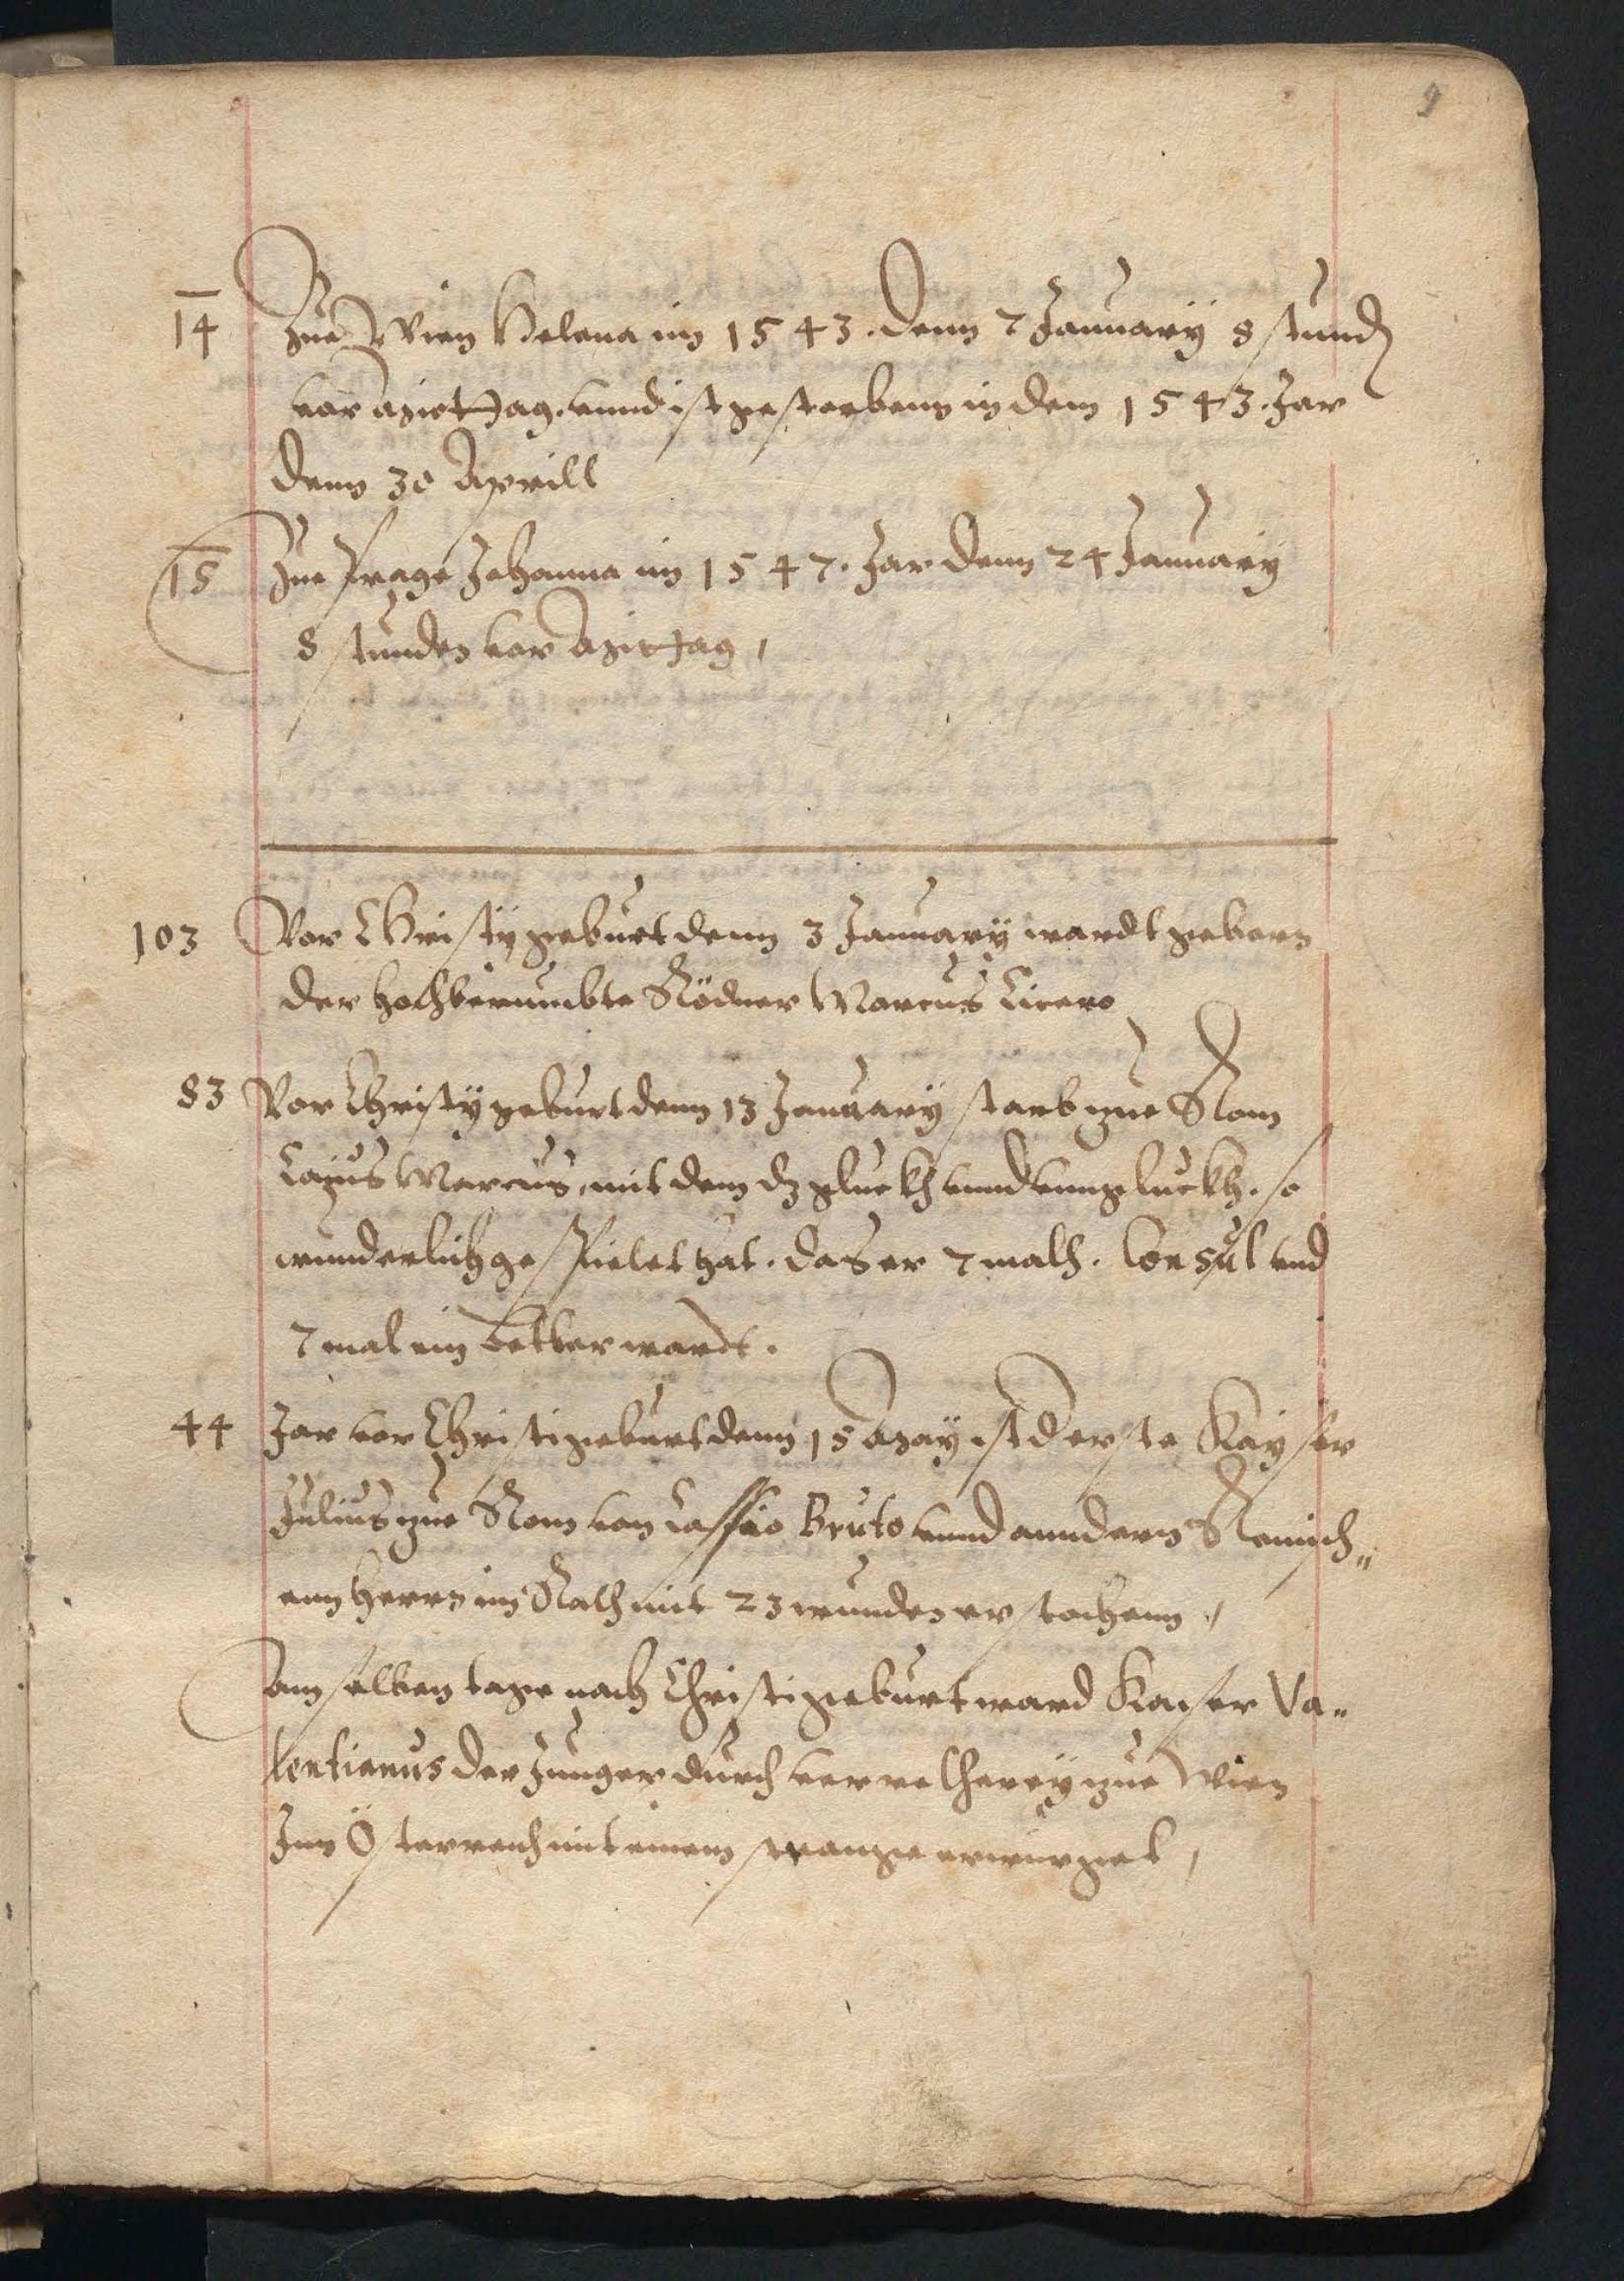 9
14 Zue Wien Helena im 1543. denn 7 January 8 stund
vor Mittag. vnnd ist gestorbenn in dem 1543. Jar
denn 30 Aprill
15 Zue Prage Johanna im 1547. Jar denn 24 January
8 stunden vor Mittag,
103 Vor Christy geburt denn 3 January wardt geborn
der hochberumbte Rödner Marcus Cicero
83 Vor Christy geburt denn 13 January starb zue Rom
Caÿus Marcus, mit dem dz gluckh vnnd vnngluckh. so
wunderlich gespielet hat. das er 7 malh. Consul vnd
7 mal ein Bettler wardt.
44 Jar vor Christi geburt denn 15 May ist d erste Kayser
Julius zue Rom von Cassio Bruto vnnd anndern Romisch„
enn herrn im Rath mit 23 wunden erstochenn,
am selben tage nach Christi geburt ward Kaiser Va„
lentianus der Junger durch verretherey zue Wien
Inn Österreich mit einem strange erwürget,